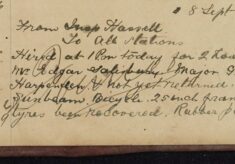 8 Sept
From Insp Hassell
To All Stations
Hired at 1 Pm today for 2 hou
Mr Edgar Salisbury Major
Harpenden & not yet returned.
Sunbeam Bicycle. 25 inch fram
tyres been recovered. Rubber p